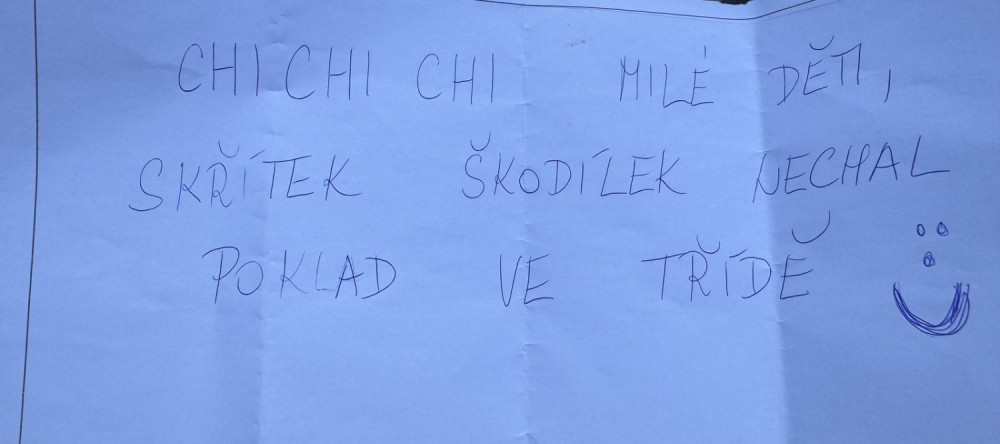 CHI CHI CHI MILÉ DĚTI,
SKŘÍTEK ŠKODÍLEK NECHAL
POKLAD VE TŘÍDĚ